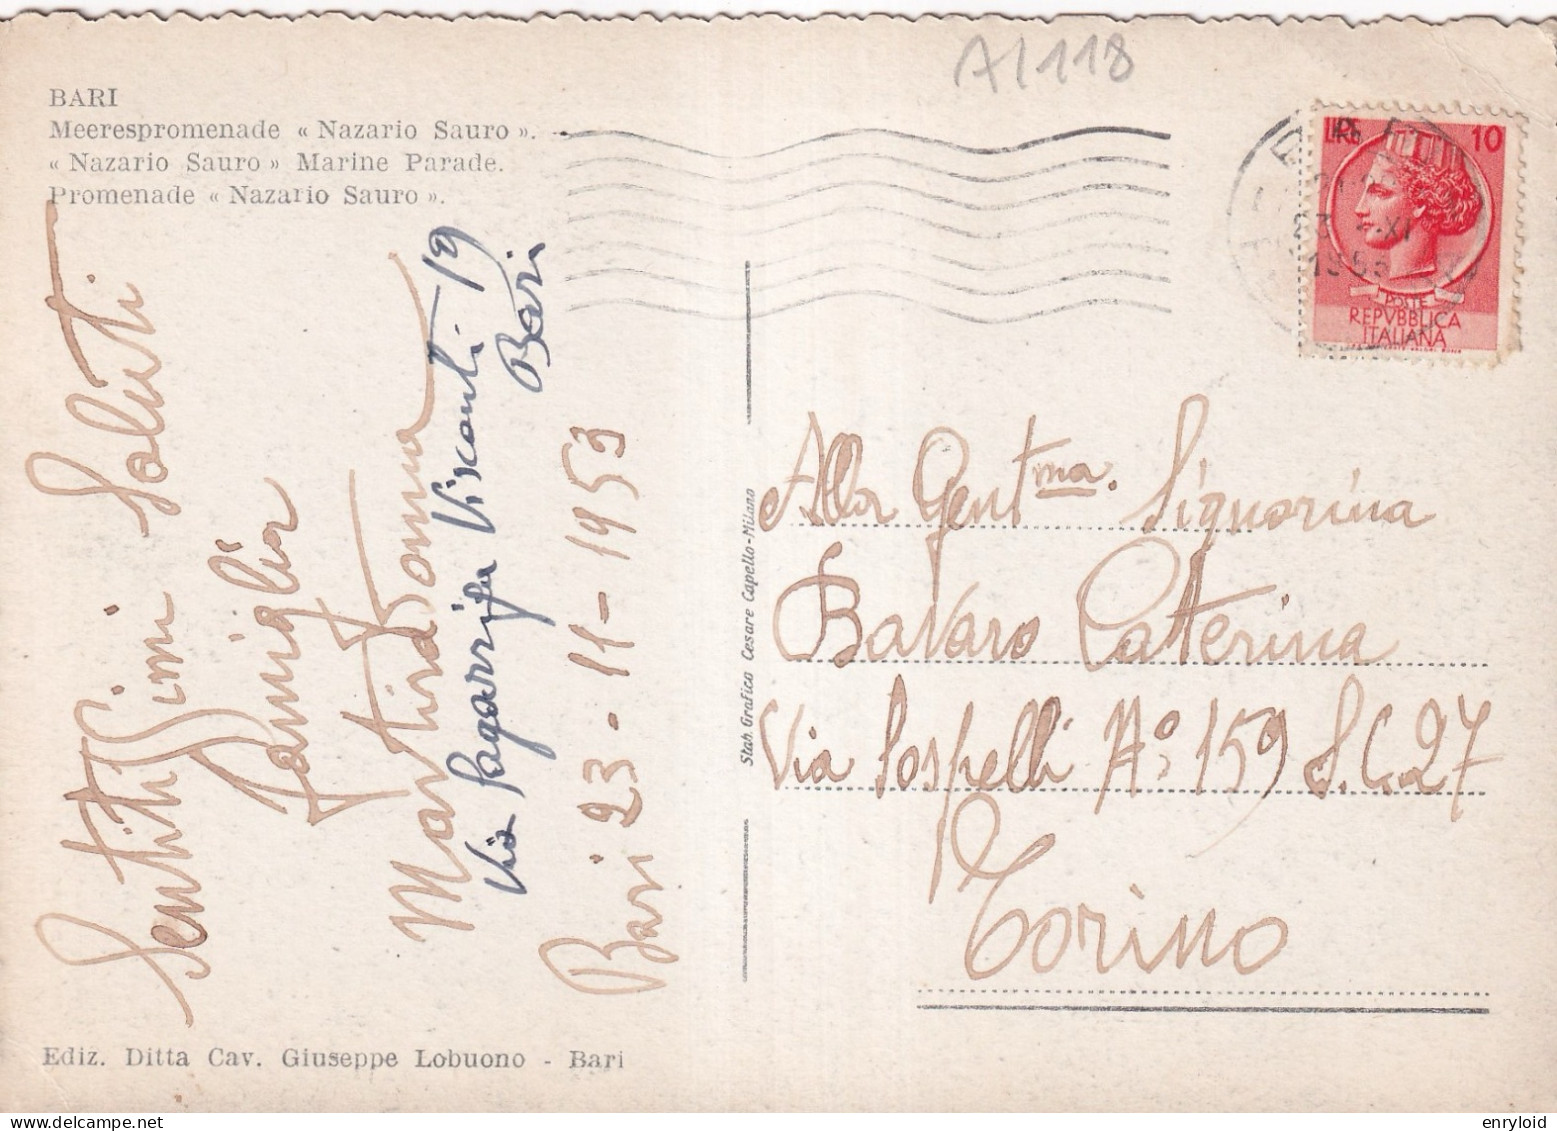 A1118
BARI
Meerespromenade « Nazario Sauro ».
« Nazario Sauro » Marine Parade.
Promenade « Nazario Sauro ».
LIRE 10
23 XI
POSTE
REPVBBLICA
ITALIANA
Sentitissimi Saluti
Famiglia
Martiradonna
Via
Visconti-19
Bari
Bari 23-11-1953
Stab. Grafico Cesare Capello-Milano
Alla Gentma. Signorina
Bavaro Caterina
Via Sospelli N° 159 S.C.27
Torino
Ediz. Ditta Cav. Giuseppe Lobuono - Bari
enryloid